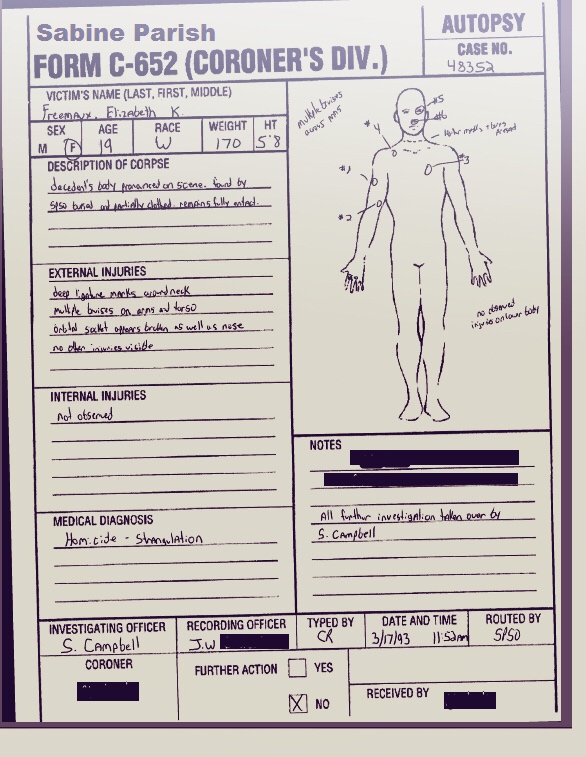 Sabine Parish
FORM C-652 (CORONER'S DIV.)
AUTOPSY
CASE NO.
48352
VICTIM'S NAME (LAST, FIRST, MIDDLE)
Elizabeth K.
SEX
M F
AGE
19
RACE
W
WEIGHT
170
HT
5'8
DESCRIPTION OF CORPSE
decedent's body pronounced on scene. found by
SPSO buried and partially clothed. remains fully intact.
EXTERNAL INJURIES
deep ligature marks around neck
multiple bruises on arms and torso
orbital socket appears broken as well as nose
no other injuries visible
INTERNAL INJURIES
not observed
MEDICAL DIAGNOSIS
Homicide - Strangulation
multiple bruises
across arms
#5
#6
#4
#3
#1
#2
no observed
injuries on lower body
NOTES
All further investigation taken over by
S. Campbell
INVESTIGATING OFFICER
S. Campbell
RECORDING OFFICER
J.W
TYPED BY
CR
DATE AND TIME
3/17/93 11:52am
ROUTED BY
SPSO
CORONER
FURTHER ACTION
YES
X NO
RECEIVED BY